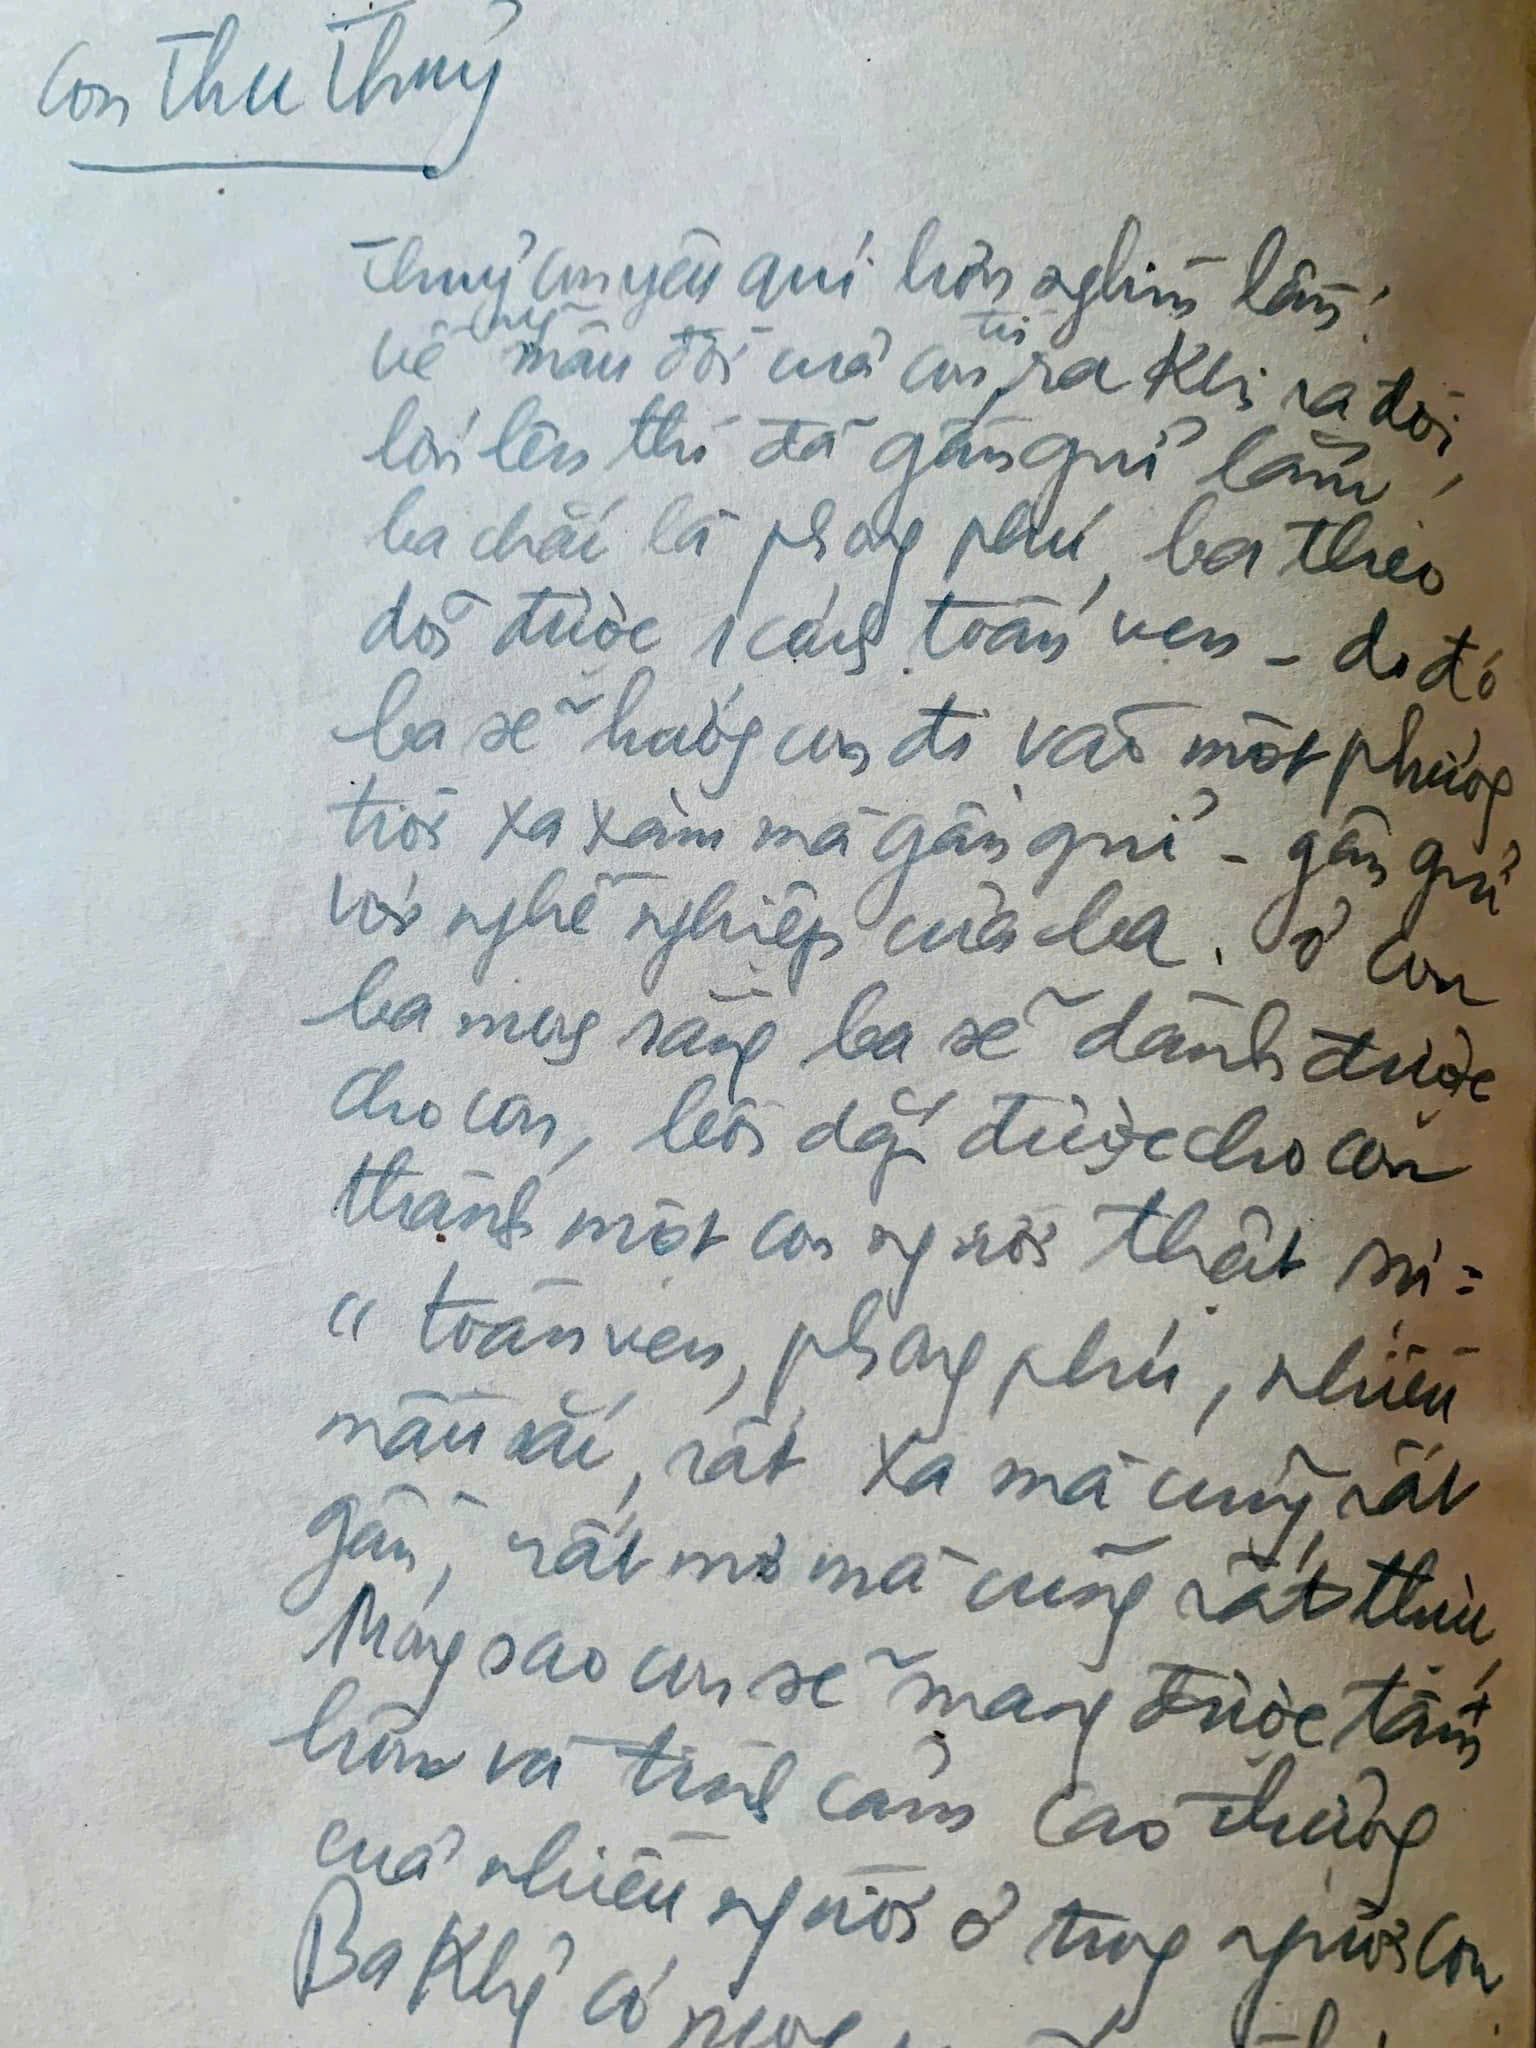 Con Thu Thuỷ
Thuỷ con yêu quí hơn nghìn lần!
về mầu đời của con từ ra khi ra đời,
lớn lên thì đã gần gũi lắm,
ba chải là phong phú, ba theo
dõi được 1 cách toàn vẹn - do đó
ba sẽ hướng con đi vào một phương
trời xa xăm mà gần gũi - gần gũi
với nghề nghiệp của ba. Ở con
ba mong rằng ba sẽ dành được
cho con, bồi đắp được cho con
thành một con người thật sự =
"toàn vẹn, phong phú, nhiều
mầu sắc, rất xa mà cũng rất
gần, rất mơ mà cũng rất thực,
Mong sao con sẽ mang được tâm
hồn và tình cảm cao thượng
của nhiều người ở trong người con
Ba Khg có mong